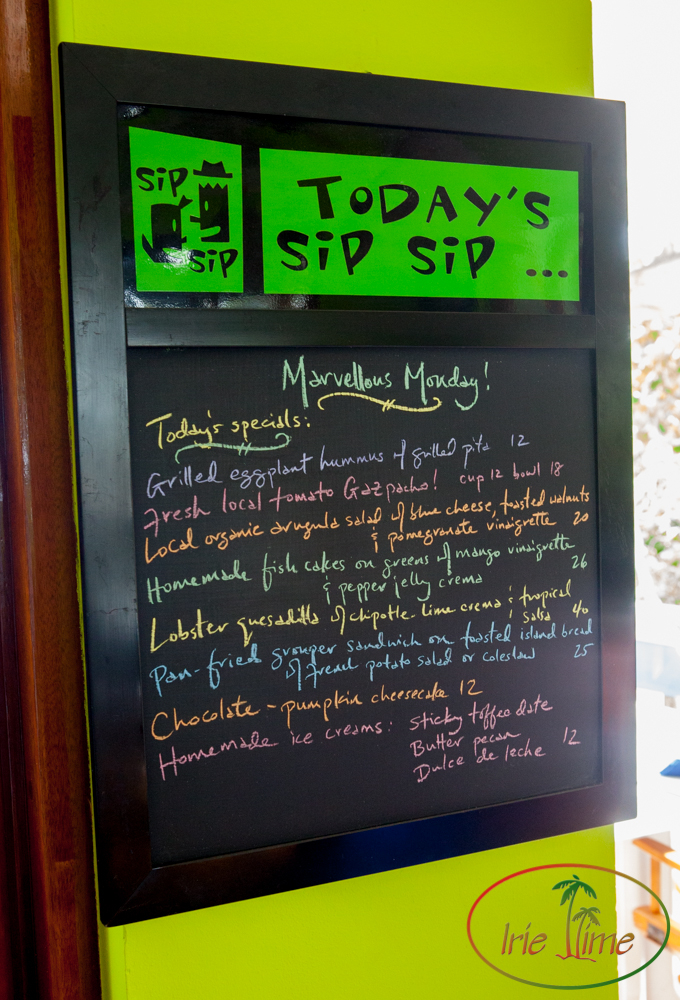 SiP
SiP
TODAY'S
SiP SiP ...
Marvellous Monday!
Today's specials:
Grilled eggplant hummus w/ grilled pita 12
Fresh local tomato Gazpacho! cup 12 bowl 18
Local organic arugula salad w/ blue cheese, toasted walnuts
& pomegranate vinaigrette 20
Homemade fish cakes on greens w/ mango vinaigrette
& pepper jelly crema 26
Lobster quesadilla w/ chipotle-lime crema & tropical
salsa 40
Pan-fried grouper sandwich on toasted island bread
w/ french potato salad or coleslaw 25
Chocolate-pumpkin cheesecake 12
Homemade ice creams: Sticky toffee date
Butter pecan
Dulce de leche 12
Irie Time